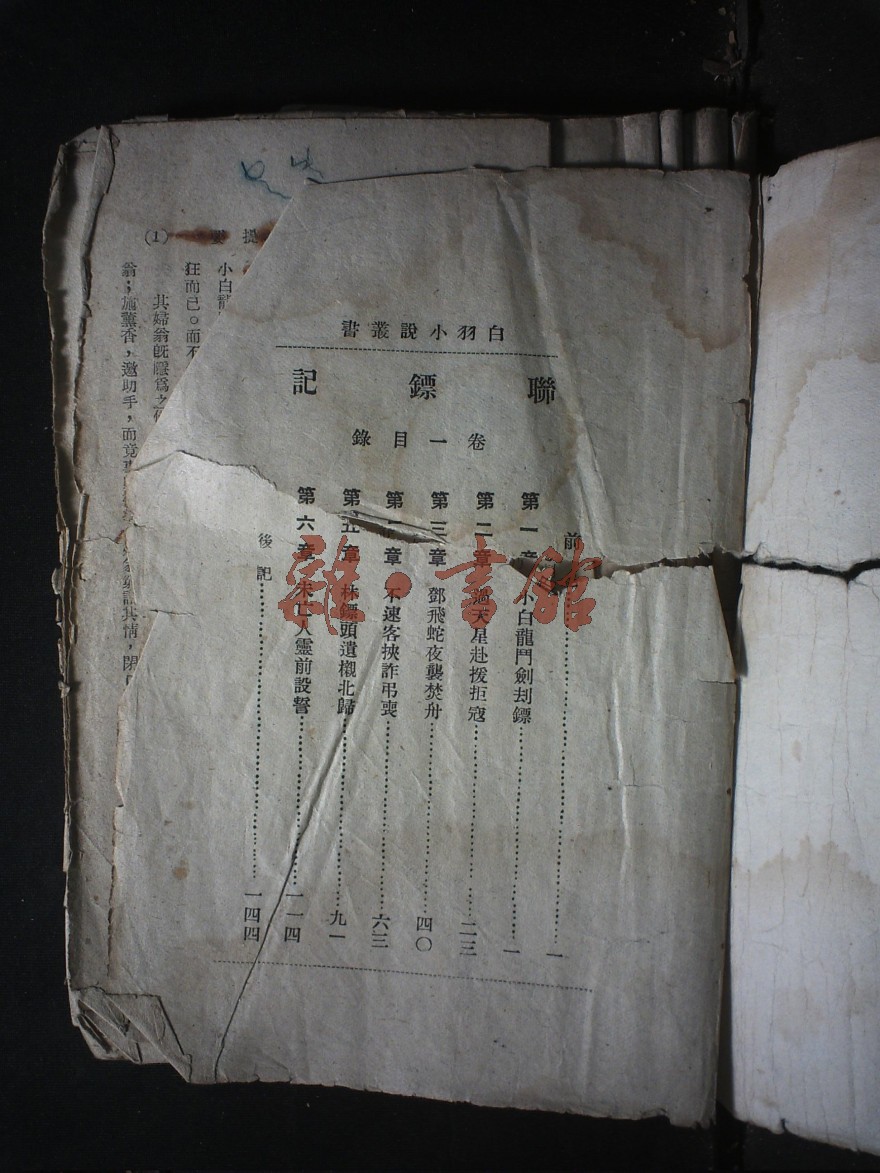 白羽小說叢書
聯鏢記
卷一目錄
前 一
第一章 小白龍鬥劍刦鏢 一
第二章 過天星赴援拒寇 二三
第三章 鄧飛蛇夜襲焚舟 四〇
第 章 不速客挾詐弔喪 六三
第五章 林鏢頭遺櫬北歸 九一
第六章 未亡人靈前設誓 一一四
後記 一四四
提要 (1)
小白龍
狂而已。而不
其婦翁旣 爲之
翁；施薰香，邀助手，而竟 其情，閉
雜·書館